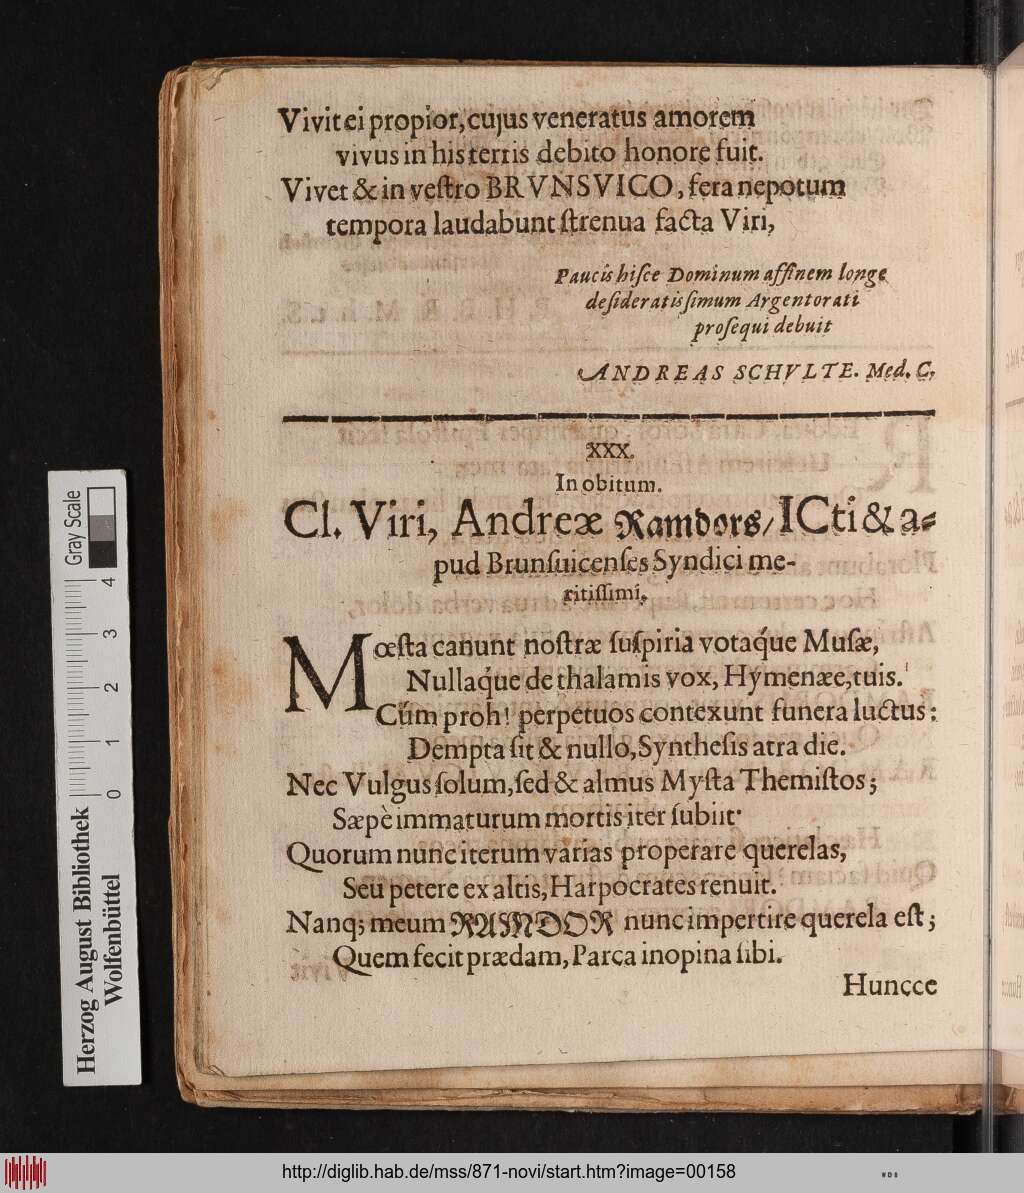 Vivit ei propior, cujus veneratus amorem
vivus in his terris debito honore fuit.
Vivet & in veſtro BRVNSVICO, fera nepotum
tempora laudabunt ſtrenua facta Viri,
Paucis hiſce Dominum affinem longe
deſideratisſimum Argentorati
proſequi debuit
ANDREAS SCHVLTE. Med. C,
XXX.
In obitum.
Cl. Viri, Andreæ Ramdors/ ICti & a-
pud Brunſuicenſes Syndici me-
ritiſſimi.
Mœſta canunt noſtræ ſuſpiria votaq́ue Muſæ,
Nullaq́ue de thalamis vox, Hymenæe, tuis.
Cùm proh! perpetuos contexunt funera luctus:
Dempta ſit & nullo, Syntheſis atra die.
Nec Vulgus ſolum, ſed & almus Myſta Themiſtos;
Sæpè immaturum mortis iter ſubiit·
Quorum nunc iterum varias properare querelas,
Seu petere ex altis, Harpocrates renuit.
Nanq; meum RAMDOR nunc impertire querela eſt;
Quem fecit prædam, Parca inopina ſibi.
Huncce
Gray Scale
0 1 2 3 4
Herzog August Bibliothek
Wolfenbüttel
http://diglib.hab.de/mss/871-novi/start.htm?image=00158
WDB